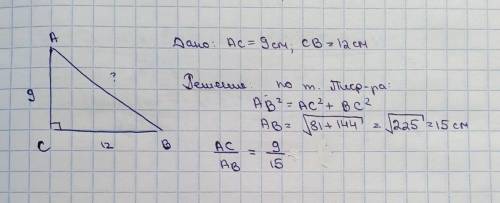 A
Дано: AC = 9 см, CB = 12 см
?
9
C
12
B
Решение по т. Пиф-ра:
AB² = AC² + BC²
AB = √81 + 144 = √225 = 15 см
AC/AB = 9/15